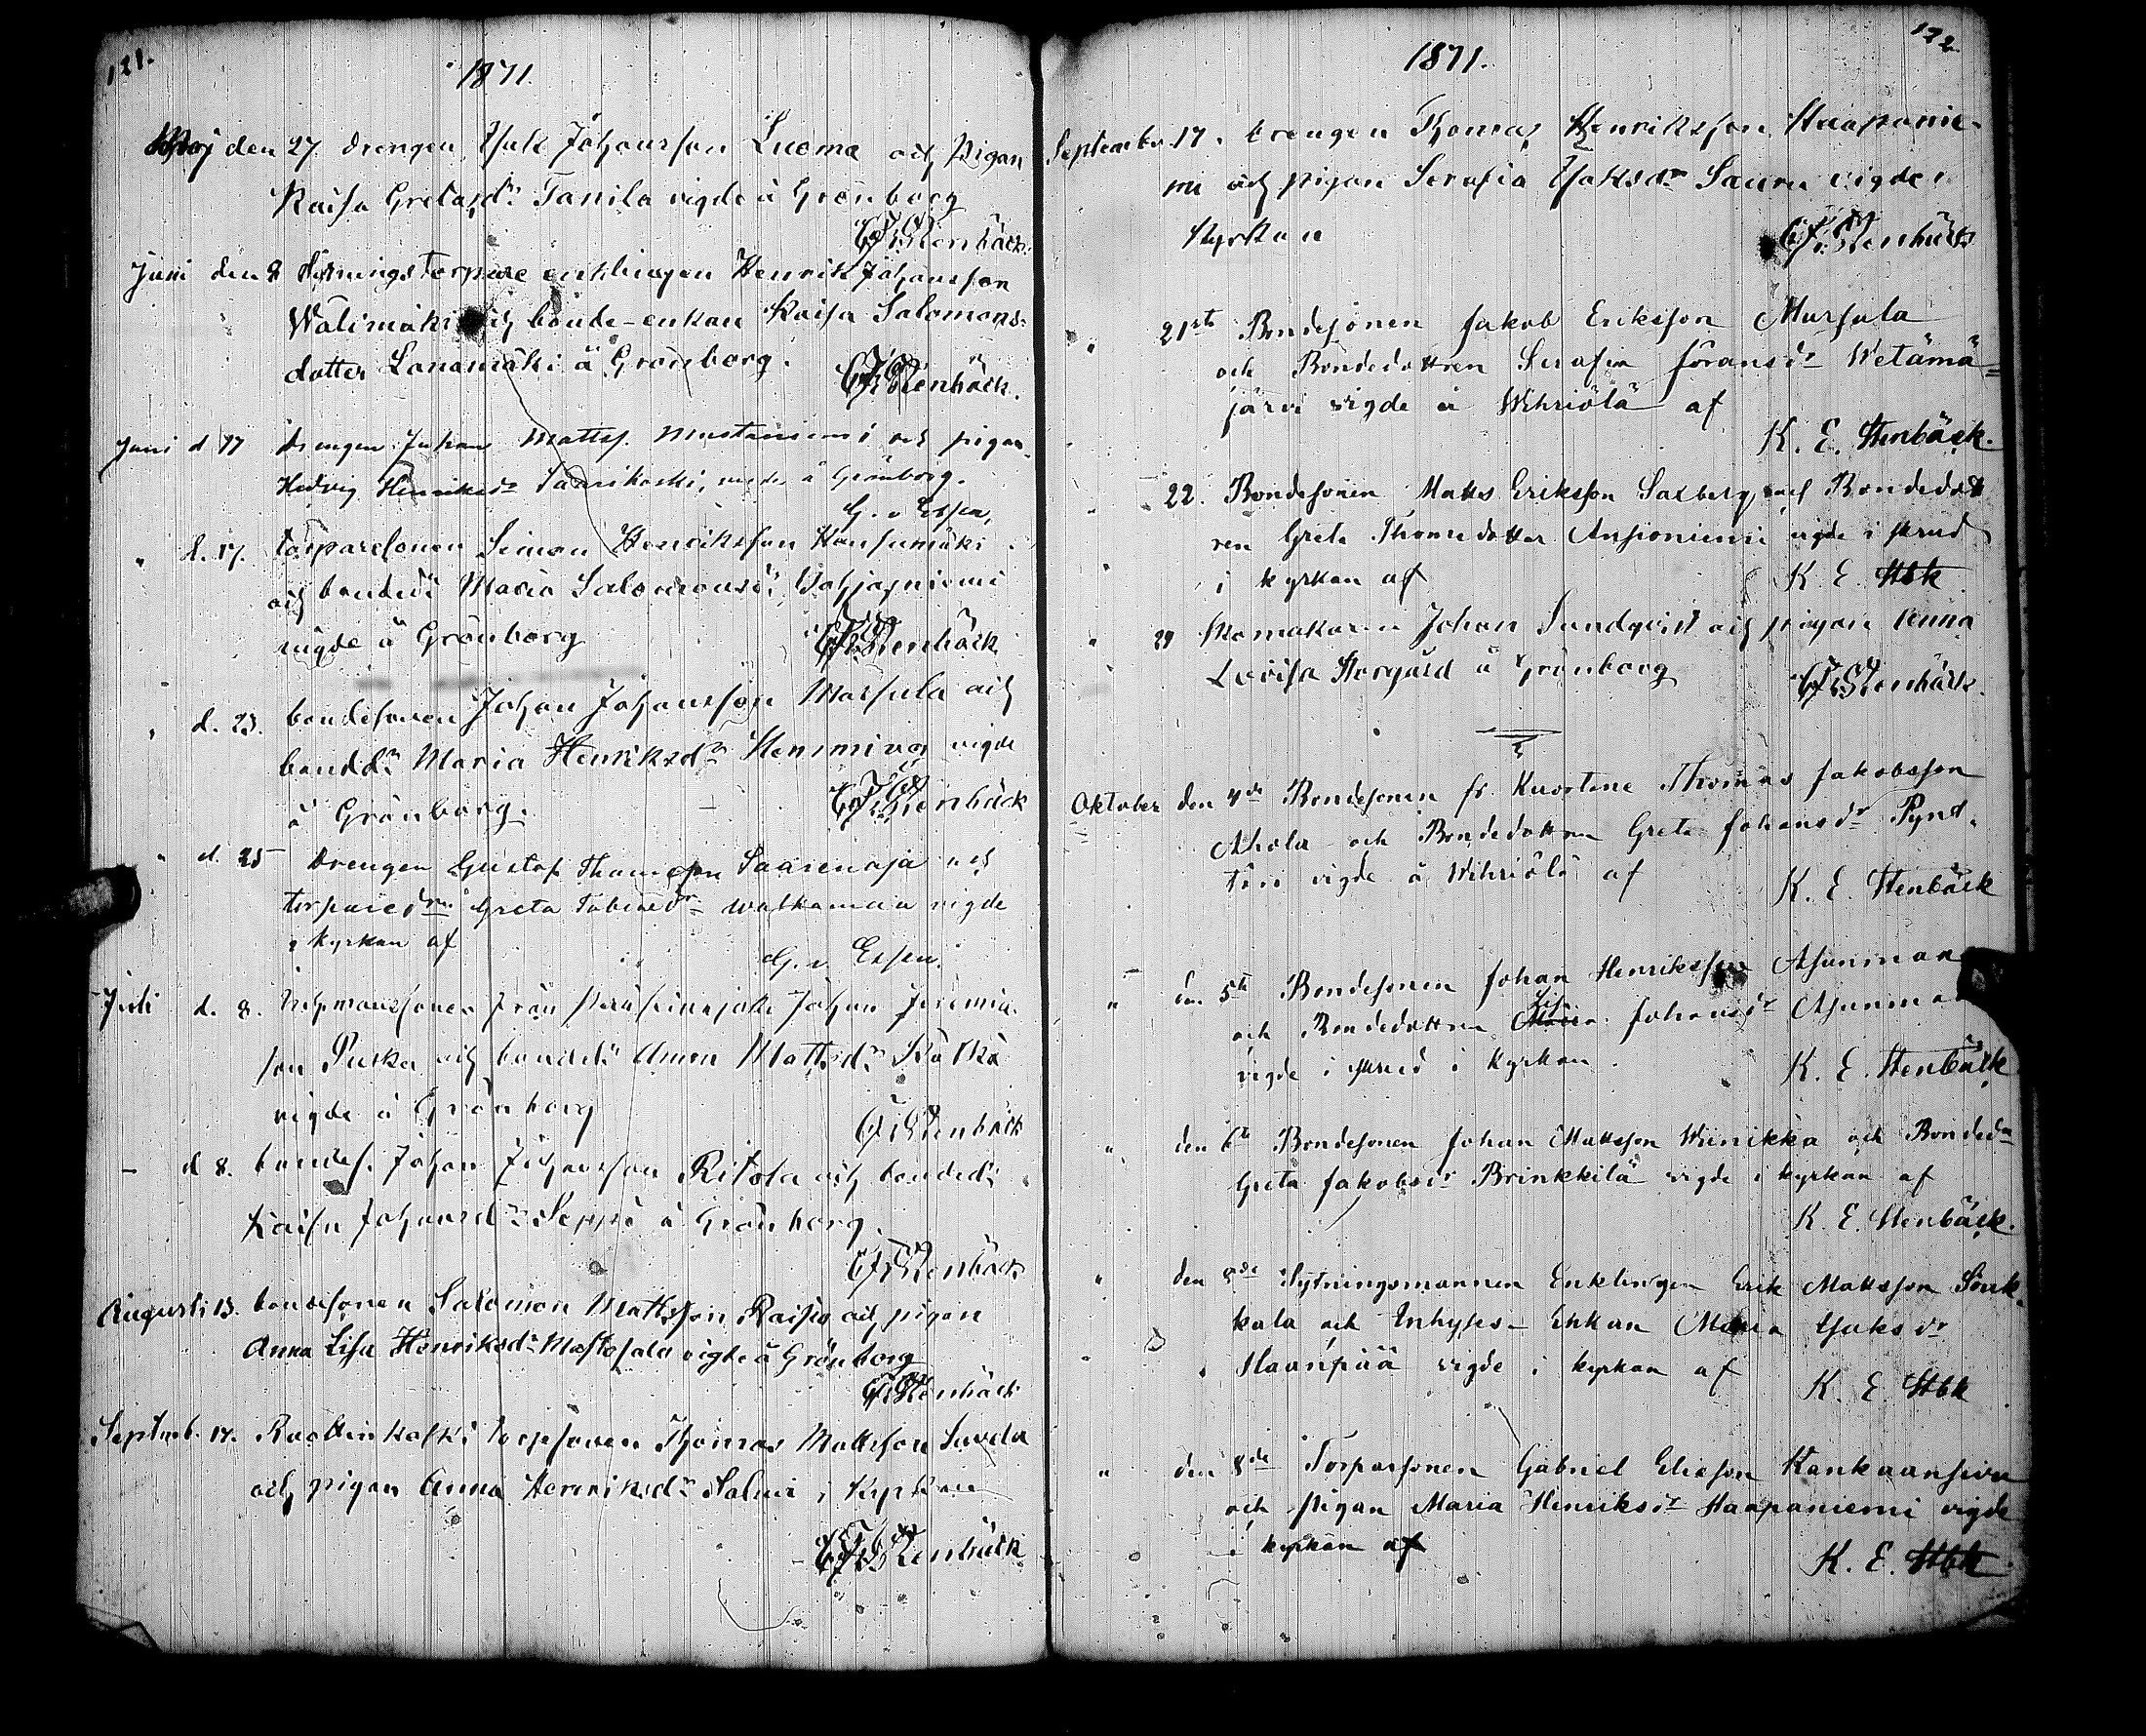 121.
1871.
Maj den 27 drengen Isak Johansson Luoma och pigan
Kaisa Gretasdr Tanila vigde å Grönborg
C F Stenbäck.
Juni den 8 Sytningstorpare enklingen Henrik Johansson
Wälimäki och bonde-enkan Kaisa Salomons-
dotter Lanamäki å Grönborg.
C F Stenbäck.
Juni d 17 drengen Johan Mattss. Mustaniemi och pigan
Hedvig Henriksdr Saarikoski, vigde å Grönborg.
G. v Essen,
" d. 17. torparesonen Simon Henriksson
och bonded. Maria Salomonsdr
vigde å Grönborg
C F Stenbäck
" d. 23. bondesonen Johan Johansson Marsula och
bondd. Maria Henriksdr Hemminge vigde
å Grönborg.
C F Stenbäck
" d. 25 Drengen Gustaf Thomasson Saarenoja och
Greta vigde
i kyrkan af
G. v. Essen.
Juli d. 8. från Johan Jeremias-
son Puska och bonded. Anna Mattsdr Kätkä
vigde å Grönborg
C F Stenbäck
- d 8. bondes. Johan Johansson Ritola och bonded.
Kaisa Johansdr Seppä å Grönborg.
C F Stenbäck
Augusti 13. bondesonen Salomon Mattsson Raisio och pigan
Anna Lisa Henriksdr vigde å Grönborg
C F Stenbäck
Septemb. 17. torpsonen Thomas Mattsson
och pigan Anna Henriksdr Salmi i kyrkan
C F Stenbäck
122.
1871.
September 17. drengen Thomas Henriksson Haapanie-
mi och pigan Serafia Isaksdr Sauru vigde i
kyrkan
C F Stenbäck
" 21sta Bondesonen Jakob Eriksson Mursula
och Bondedottren Serafia Göransdr Wetämä=
järvi vigde å Wihriölä af
K. E. Stenbäck.
" 22. Bondesonen Matts Eriksson Saxberg och Bondedott
ren Greta Thomedotter Ansioniemi vigde i skrud
i kyrkan af
K. E. Stbk
" 29 Skomakaren Johan Sundqvist och pigan Anna
Lovisa Storgård å Grönborg
C F Stenbäck.
Oktober den 4de Bondesonen fr. Kuortane Thomas Jakobsson
Ahola och Bondedottren Greta Johansdr Pynt-
täri vigde å Wihriölä af
K. E. Stenbäck
" den 5te Bondesonen Johan Henriksson Asunmaa
och Bondedottren Lisa Johansdr Asunmaa
vigde i skrud i kyrkan.
K. E. Stenbäck
" den 6te Bondesonen Johan Mattsson Wiinikka och Bondedn
Greta Jakobsdr Brinkkilä vigde i kyrkan af
K. E. Stenbäck.
" den 8de Sytningsmannen Enklingen Erik Mattsson Sönk-
kala och Inhyses-Enkan Maria Isaksdr
Haanpää vigde i kyrkan af
K. E. Stbk
" den 8de Torparsonen Gabriel Eliasson Kankaansivu
och pigan Maria Henriksdr Haapaniemi vigde
i kyrkan af
K. E. Stbk.